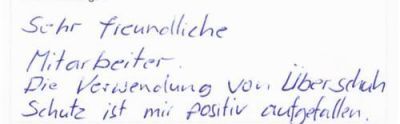 Sehr freundliche
Mitarbeiter.
Die Verwendung von Überschuh
Schutz ist mir positiv aufgefallen.